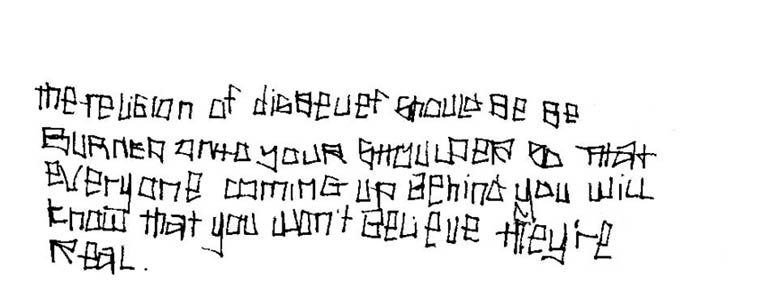 the religion of disbelief should be be
burned onto your shoulder so that
everyone coming up behind you will
know that you won't believe they're
real.